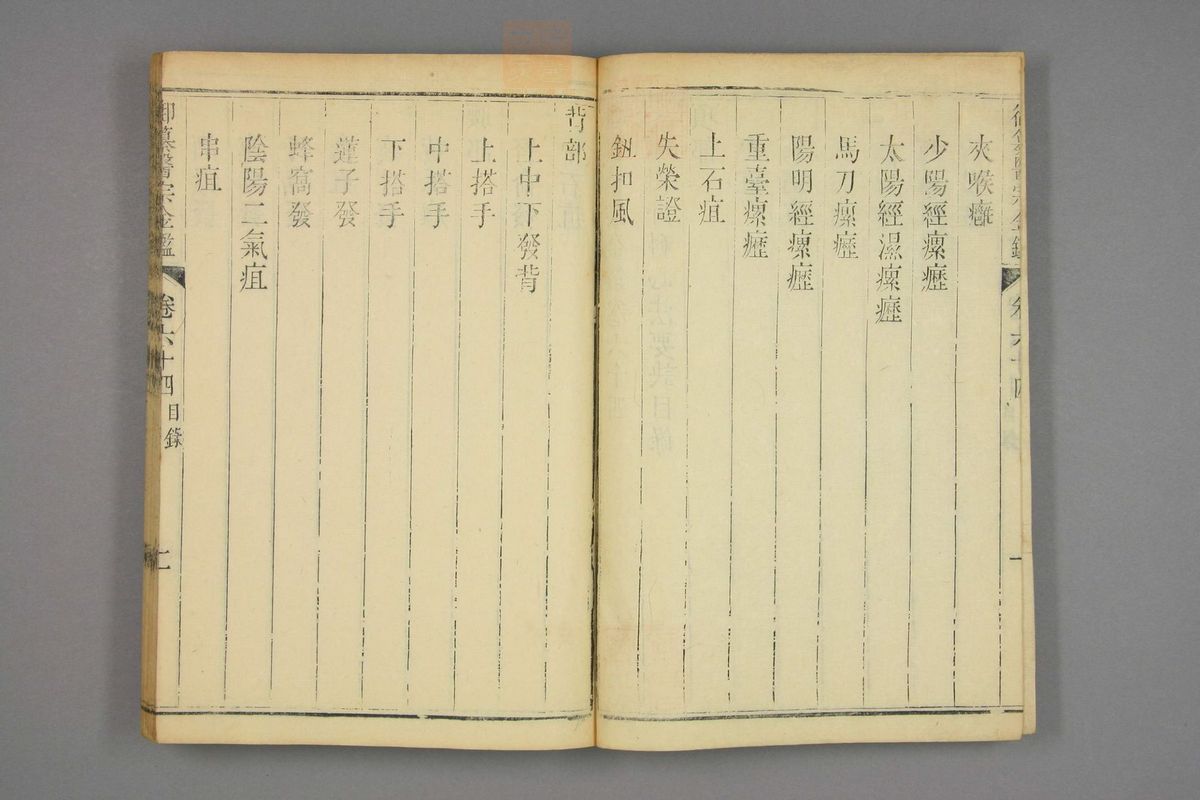 夾喉癰
少陽經瘰癧
太陽經濕瘰癧
馬刀瘰癧
陽明經瘰癧
重臺瘰癧
上石疽
失榮證
鈕扣風
背部
上中下發背
上搭手
中搭手
下搭手
蓮子發
蜂窩發
陰陽二氣疽
串疽
御纂醫宗金鑑 卷六十四 目錄